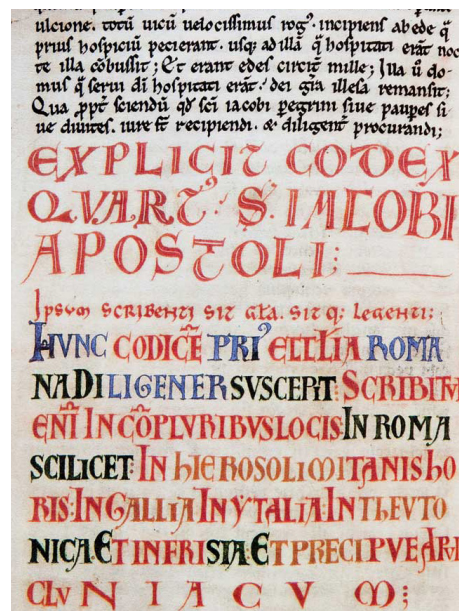 ulcione. totū uicū velocissimus rogꝰ. incipiens ab ede q̄
prius hospiciū pecierant. usq; ad illā q̄ hospitati erāt noc
te illa cōbussit; Et erant edes circit̄ mille; Illa ū do-
mus q̄ serui dī hospitati erāt. dei gr̄a illesa remansit;
Qua ꝓpt̄ sciendū qd̄ sc̄i iacobi peregrini siue paupes si-
ue diuites. iure st̄ recipiendi. & diligent̄ procurandi;
EXPLICIT CODEX
QVARTꝰ. S. IACOBI
APOSTOLI;
Ipsum scribenti sit gła. sit q; legenti;
HVNC CODICĒ PRIꝰ ECCLĪA ROMA
NA DILIGENTER SVSCEPIT: SCRIBITVR
ENĪ IN CŌPLVRIBVS LOCIS: IN ROMA
SCILICET. IN HIEROSOLIMITANIS HO
RIS: IN GALLIA IN YTALIA: IN THEVTO
NICA: ET IN FRISIA: ET PRECIPVE APVD
CLVNIACVM: